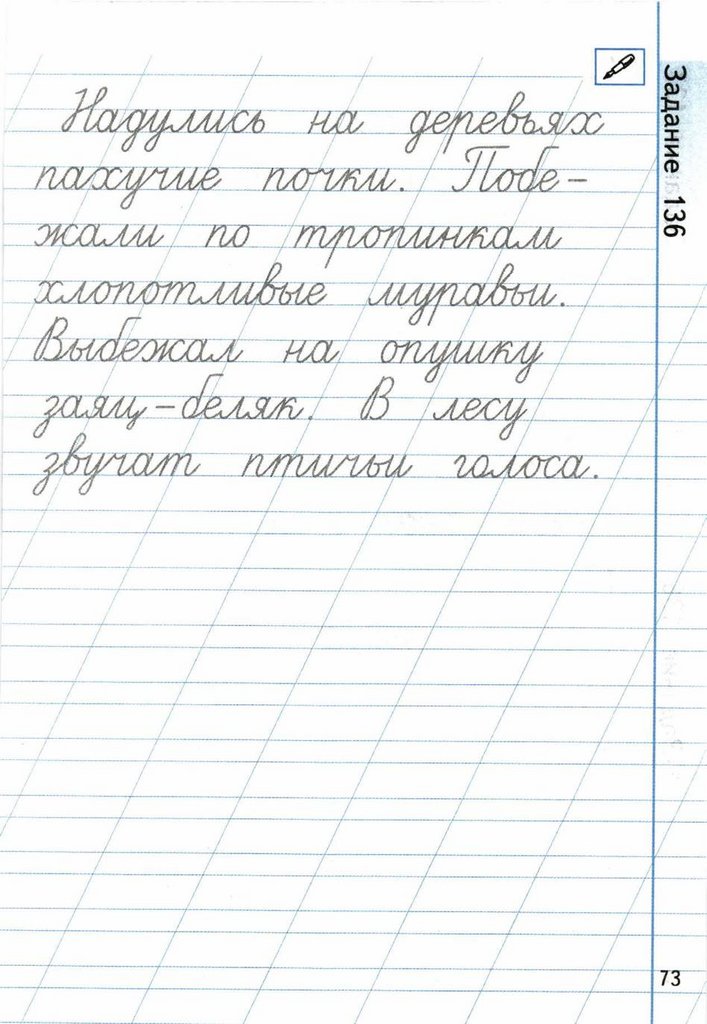 Задание 136
Надулись на деревьях
пахучие почки. Побе-
жали по тропинкам
хлопотливые муравьи.
Выбежал на опушку
заяц-беляк. В лесу
звучат птичьи голоса.
73